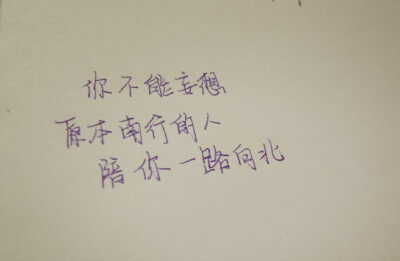 你不能妄想
原本南行的人
陪你一路向北